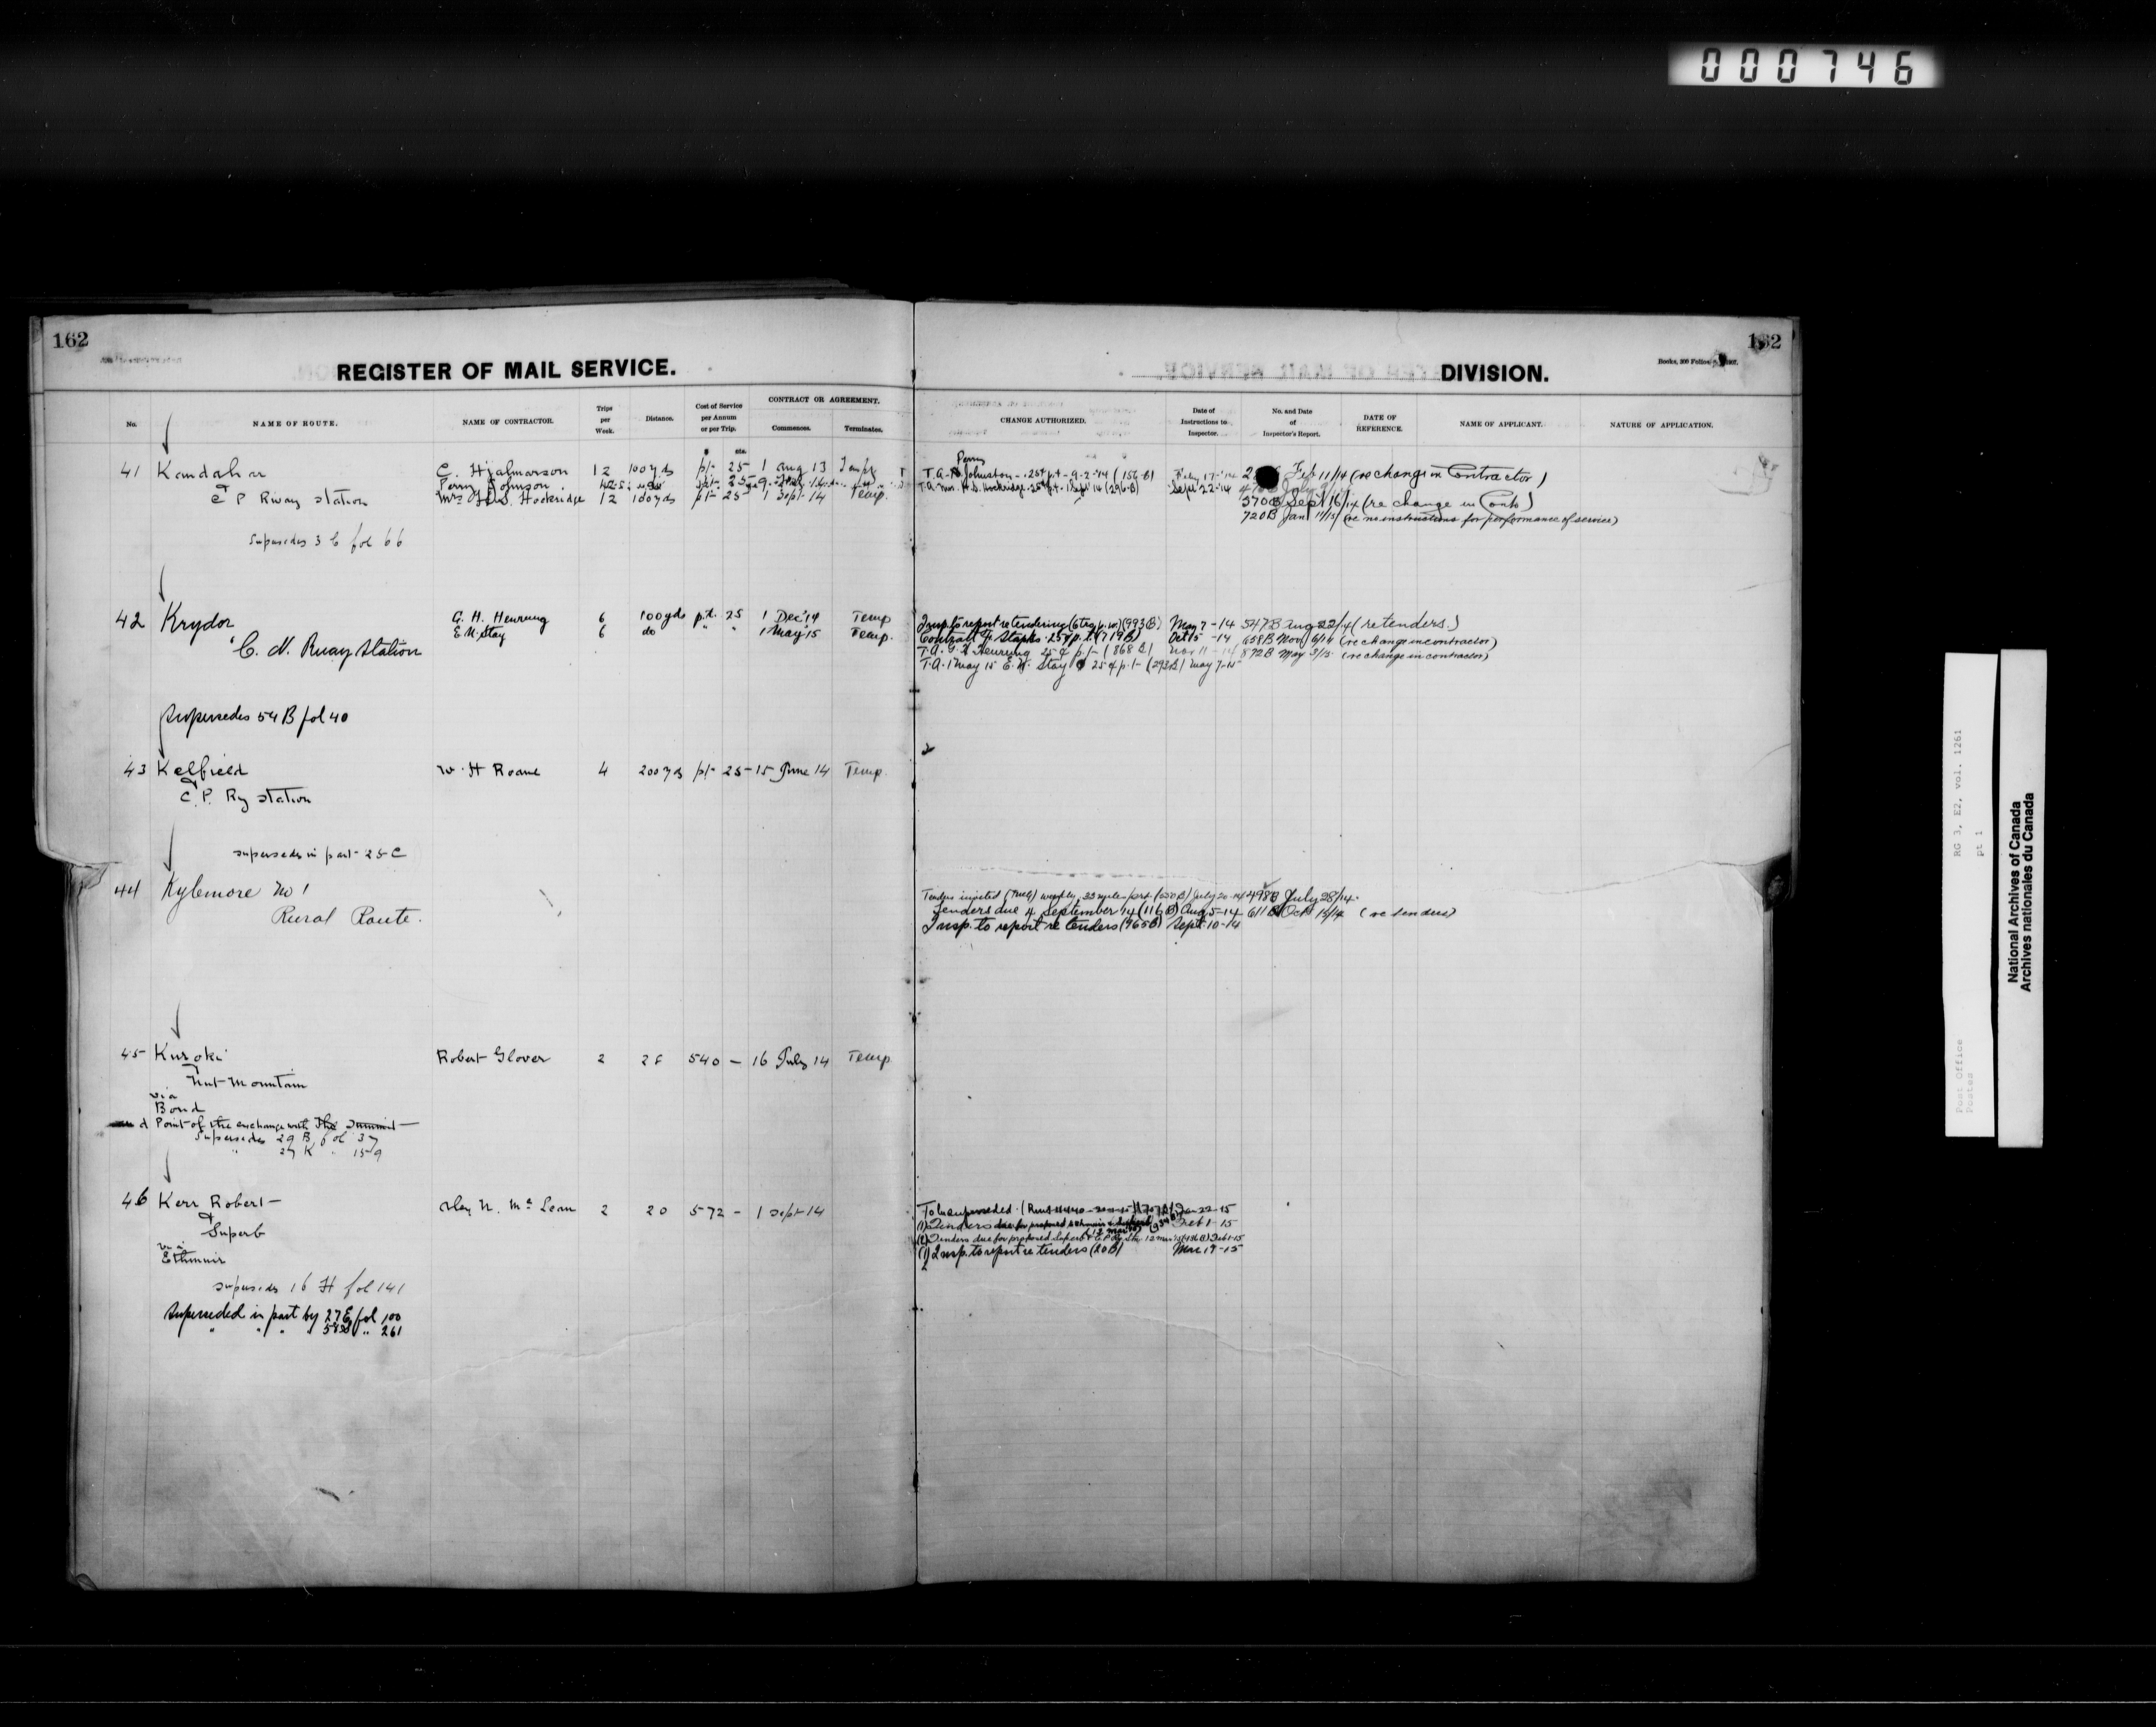 000746
162
162
REGISTER OF MAIL SERVICE.
DIVISION.
Books, 300 Folios
No.
NAME OF ROUTE.
NAME OF CONTRACTOR.
Trips per Week.
Distance.
Cost of Service per Annum or per Trip.
CONTRACT OR AGREEMENT.
Commences.
Terminates.
CHANGE AUTHORIZED.
Date of Instructions to Inspector.
No. and Date of Inspector's Report.
DATE OF REFERENCE.
NAME OF APPLICANT.
NATURE OF APPLICATION.
41 Kandahar C. Hjalmarson 12 100 yds p/t 25 1 Aug 13 Temp
Perry Johnson
& C P Rway station Mrs H.S. Hockridge 12 100 yds p/t 25 1 Sept 14 Temp.
Supersedes 3 C fol 66
Perry
T.A. Johnston - .25¢ p.t. - 9-2-'14 (156-B) Feby 17-'14 Feb 11/14 (re change in Contractor)
T.A. Mrs. H.S. Hockridge .25¢ p.t. 1 Sept 14 (296-B) Sept 22-'14
570B Sept 16/14 (re change in Contr)
720B Jan 11/15 (re no instructions for performance of service)
42 Krydor G. H. Henrung 6 100 yds p.t. 25 1 Dec '14 Temp
E.N. Stay 6 do " " 1 May '15 Temp.
& C. N. Rway Station
Supersedes 54 B fol 40
Insp. to report re tendering (6 t.p.w.) (993B) May 7-14 547B Aug 22/14 (re tenders.)
Contract Staples .25¢ p.t. (719B) Oct 15-14 658B Nov 6/14 (re change in contractor)
T.A. G.H. Henrung 25¢ p/t (868 B) Nov 11-14 872B May 3/15 (re change in contractor)
T.A. 1 May 15 E.N. Stay 25¢ p.t. (293B) May 7-15
43 Kelfield W. H Roane 4 200 yds p/t 25 15 June 14 Temp.
& C. P. Ry station
supersedes in part 25 C
44 Kylemore No 1
Rural Route.
Tenders invited weekly, 33 mile July 20-14 498B July 28/14.
Tenders due 4 September 14 (116B) Aug 5-14 611B Oct 15/14 (re tenders)
Insp. to report re tenders (965B) Sept. 10-14
45 Kuroki Robert Glover 2 28 540 — 16 July 14 Temp
& Nut Mountain
via
Bond
and Point of the exchange with The Summit
Supersedes 29 B fol 37
" 27 K " 159
46 Kerr Robert Alex N. McLean 2 20 572 - 1 Sept 14
& Superb
via
Ethmuir
supersedes 16 H fol 141
Superseded in part by 27 E fol 100
" " " " " 261
To be superseded Jan 22-15
(1) Tenders due for proposed Feb 1-15
(2) Tenders due for proposed Superb & C.P. Ry Sta. 12 Mar Feb 1-15
(1) Insp. to report re tenders (20B) Mar 19-15
2
RG 3, E2, vol. 1261
pt 1
Post Office
Postes
National Archives of Canada
Archives nationales du Canada